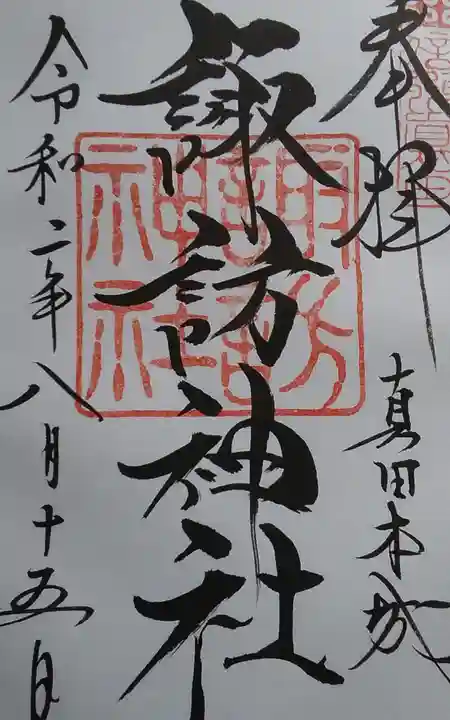 奉拝
真田本城
諏訪神社
諏訪神社
令和二年八月十五日